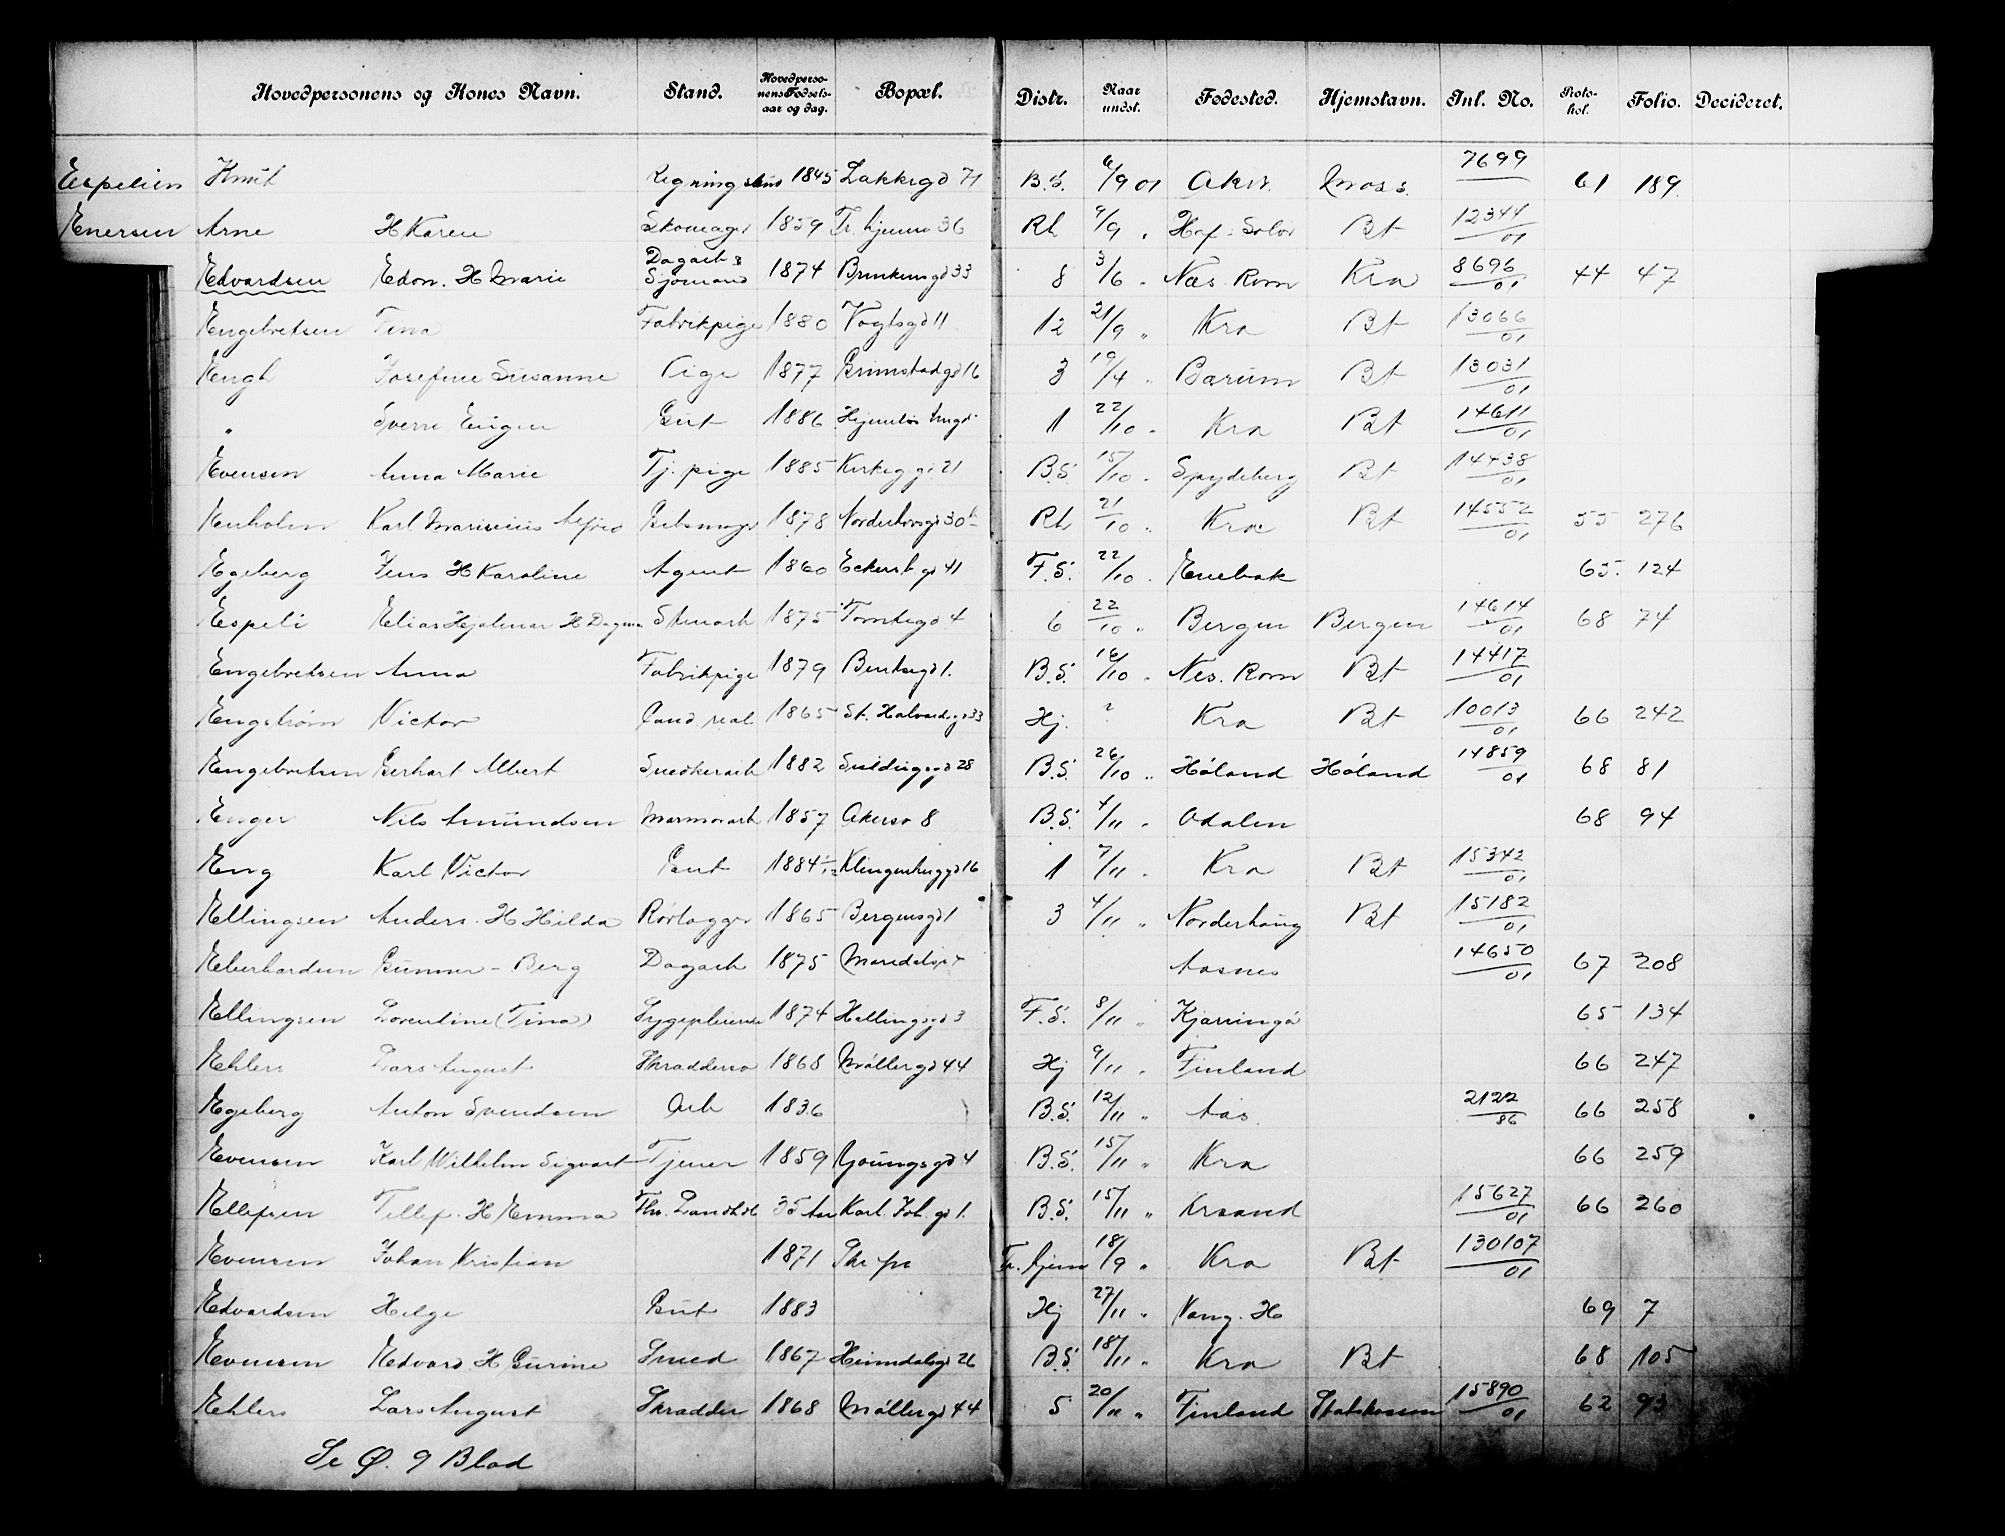 Hovedpersonens og Kones Navn. Stand. Hovedpersonens Fødselsaar og dag. Bopæl. Distr. Naar undst. Fødested. Hjemstavn. Inl. No. Protokol. Folio. Decideret.
Espelien Knut 1845 Lakkegd 71 B.S. 6/9 01 Aker Moss 7699 61 189
Enersen Arne H Karen Skomager 1859 Tr. hjemm 36 Rh 9/9 " Hof. Solør Bt 12344/01
Edvardsen Edvn. H Marie Dagarb & Sjømand 1874 Brinkensgd 33 8 3/6 " Næs. Rom Kra 8696/01 44 47
Engebretsen Tina Fabrikpige 1880 Vogtsgd 11 12 21/9 " Kra Bt 13066/01
Engh Josefine Susanne Pige 1877 Grimstadgd 16 3 19/4 " Bærum Bt 13031/01
" Sverre Eugen Gut 1886 1 22/10 " Kra Bt 14611/01
Evensen Anna Marie Tj. pige 1885 Kirkeg. gd. 21 B.S. 15/10 " Spydeberg Bt 14438/01
Karl Marinius Alfred 1878 Norderhovsgd 30 b Rh 21/10 " Kra Bt 14552/01 55 276
Egeberg Jens H Karoline Agent 1860 Eckersb gd 41 F.S. 22/10 " Enebak 65 124
Espeli Elias Hjalmar H Dagma Stenarb 1875 Tomtegd 4 6 22/10 " Bergen Bergen 14614/01 68 74
Engebretsen Anna Fabrikpige 1879 Bentsegd 1. B.S. 16/10 " Nes. Rom Bt 14417/01
Engstrøm Victor Cand. real 1865 St. Halvardsgd 33 Hj. ? Kra Bt 10013/01 66 242
Engebretsen Gerhart Albert Snedkerarb 1882 28 B.S. 26/10 " Høland Høland 14859/01 68 81
Enger Nils Amundsen Marmorarb 1857 Akersv 8 B.S. 4/11 " Odalen 68 94
Eng Karl Victor Gut 1884 1/12 Klingenberggd 16 1 7/11 " Kra Bt 15342/01
Ellingsen Anders. H Hilda Rørlægger 1865 Bergensgd 1 3 4/11 " Norderhaug Bt 15182/01
Eberhardsen Gunnar - Berg Dagarb 1875 Aasnes 14650/01 67 208
Ellingsen Lorentine (Tina) Sygepleierske 1874 Hallingsgd 3 F.S. 8/11 " Kjærringø 65 134
Ehlers Lars August Skræddersv 1868 Møllergd 44 Hj 9/11 " Finland 66 247
Egeberg Anton Svendsen Arb 1836 B.S. 12/11 " Aas 2122/86 66 258
Evensen Karl Wilhelm Sigvart Tjener 1859 Youngsgd 4 B.S. 15/11 " Kra 66 259
Ellefsen Tellef. H Emma 35 Aar Karl. Joh. gd 1. B.S. 15/11 " Krsand 15627/01 66 260
Evensen Johan Kristian 1871 Tr. hjem 18/9 " Kra Bt 130107/01
Edvardsen Helge Gut 1883 Hj 27/11 " Vang. H 69 7
Evensen Edvard H Gurine Smed 1867 Heimdalsgd 26 B.S. 18/11 " Kra Bt 68 105
Ehlers Lars August Skrædder 1868 Møllergd 44 5 20/11 " Finland Statskassen 15890/01 62 93
Se Ø. 9 Blad